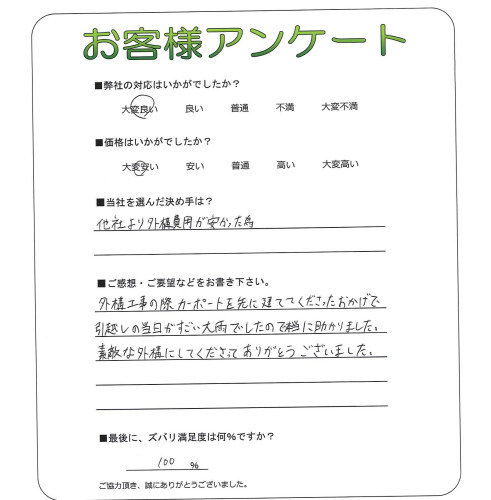 お客様アンケート
■弊社の対応はいかがでしたか？
大変良い 良い 普通 不満 大変不満
■価格はいかがでしたか？
大変安い 安い 普通 高い 大変高い
■当社を選んだ決め手は？
他社より外構費用が安かった為
■ご感想・ご要望などをお書き下さい。
外構工事の際カーポートを先に建ててくださったおかげで
引越しの当日がすごい大雨でしたので本当に助かりました。
素敵な外構にしてくださってありがとうございました。
■最後に、ズバリ満足度は何%ですか？
100 %
ご協力頂き、誠にありがとうございました。